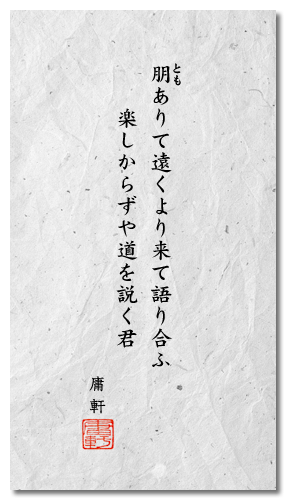 朋ありて遠くより来て語り合ふ
とも
楽しからずや道を説く君
庸軒
庸軒